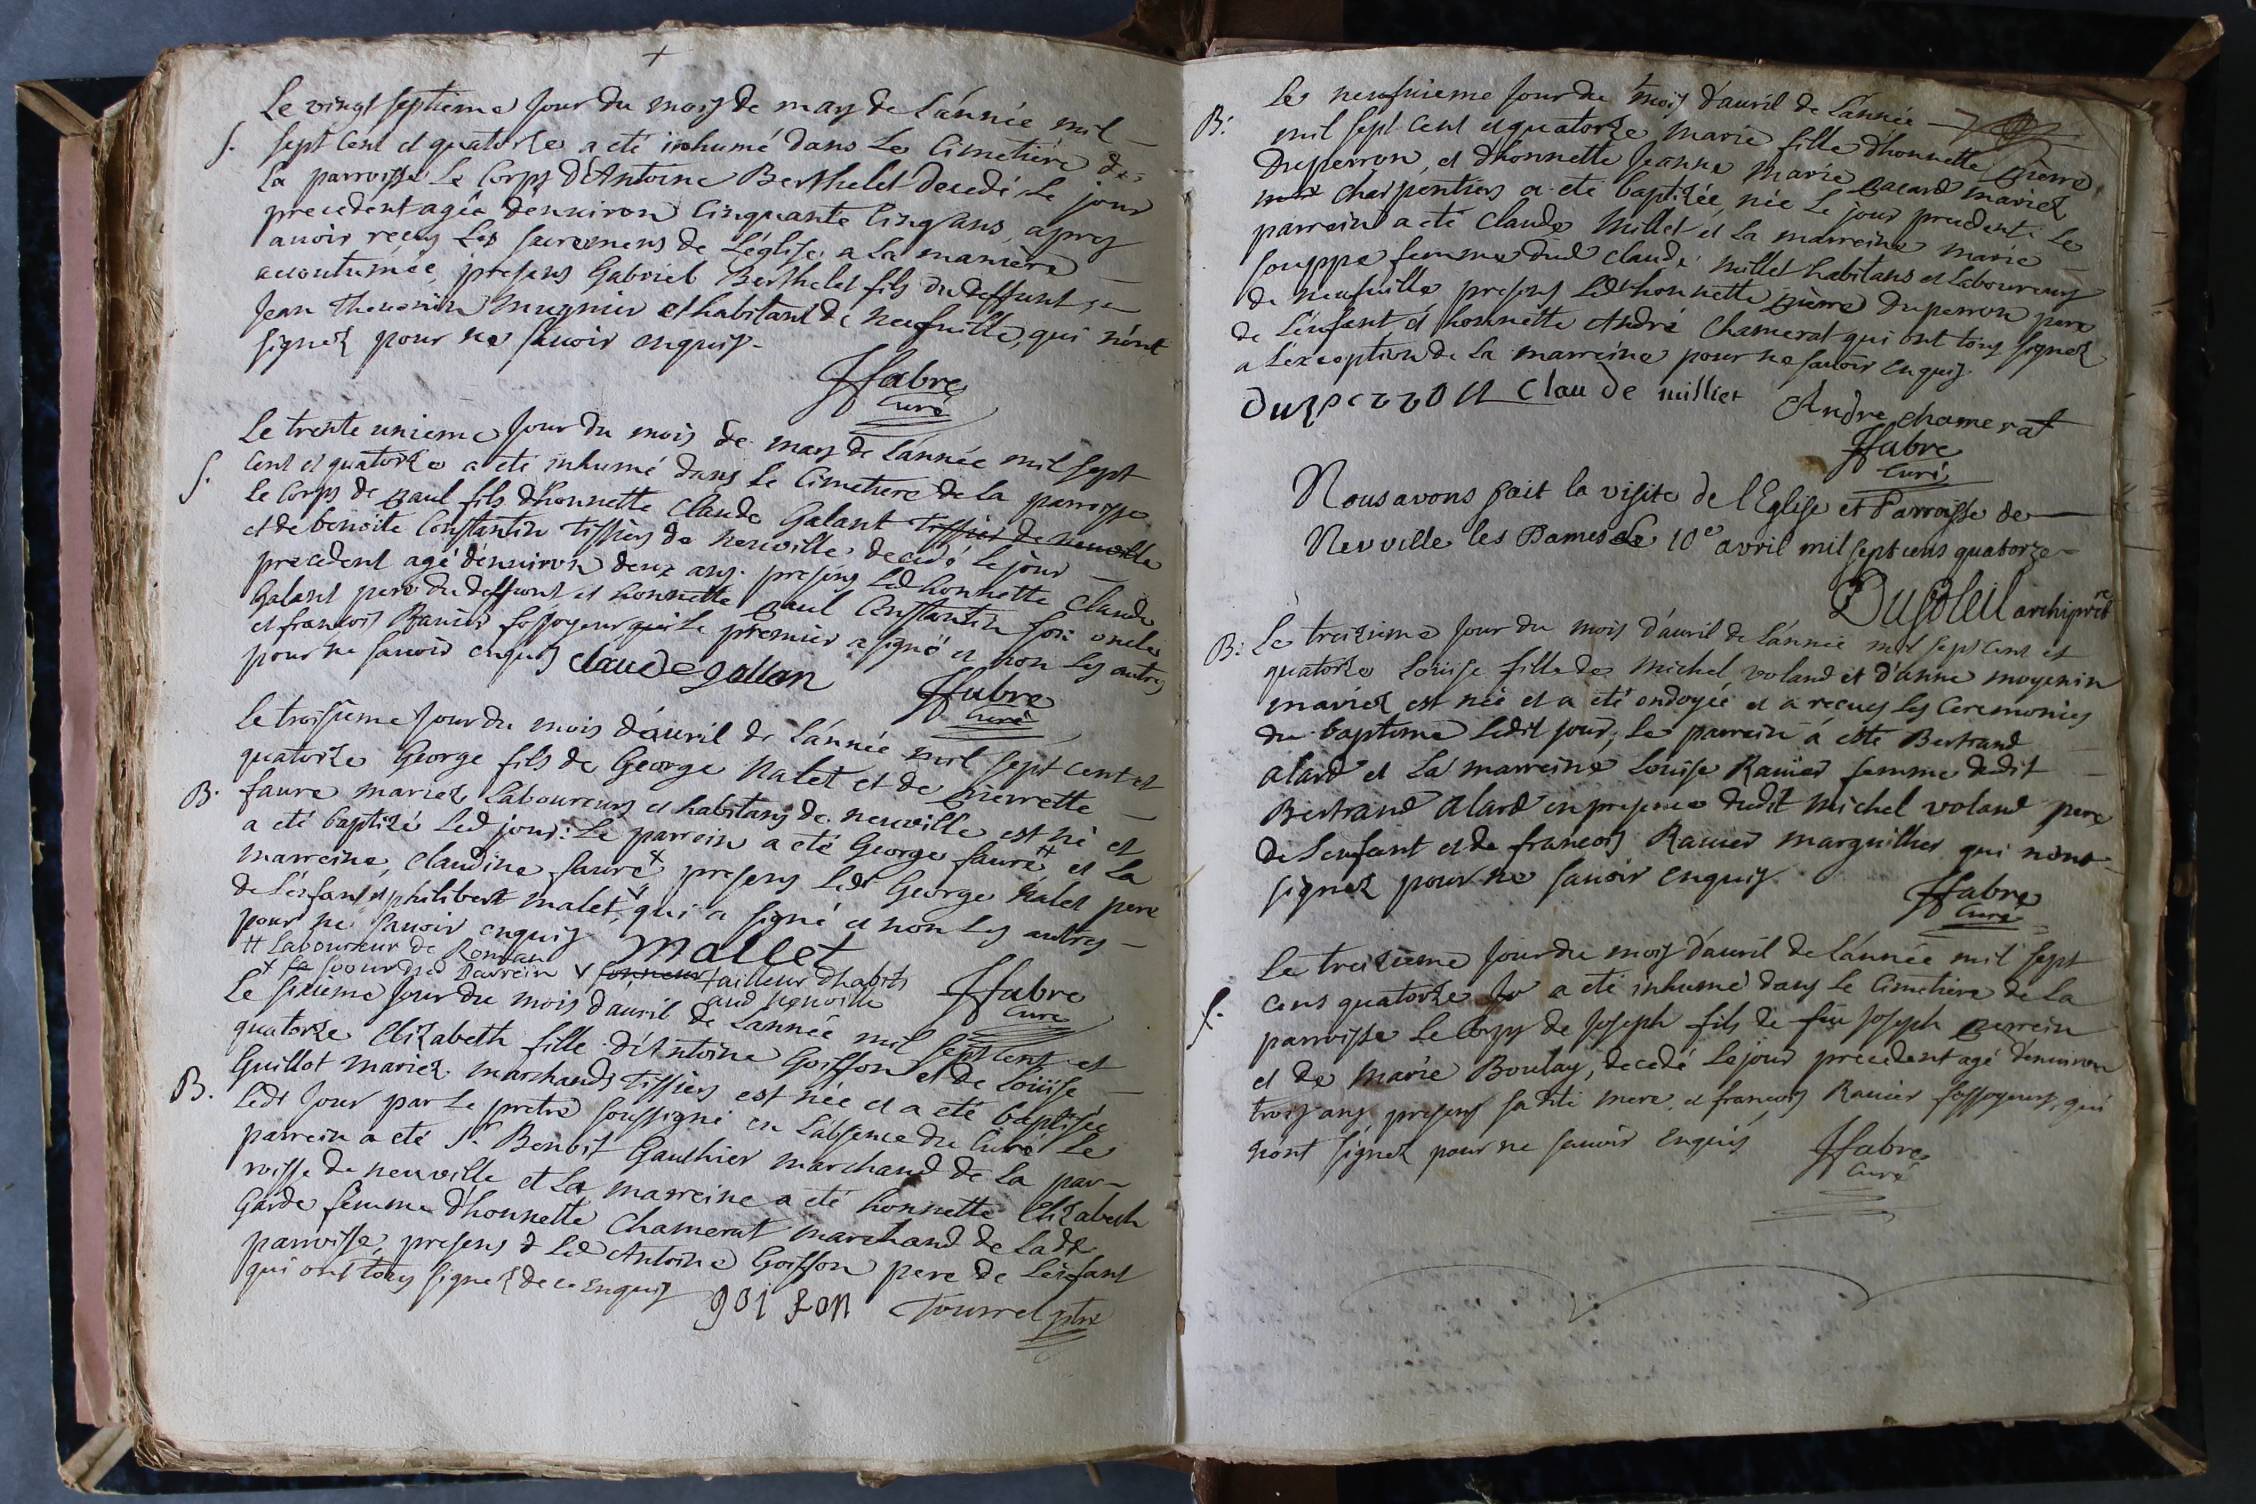 +
Le vingt septieme Jour du mois de may de L'année mil
S. sept Cent et quatorze a eté inhumé dans Le Cimetiére de
La parroisse Le Corps d'Antoine Berthelet decedé Le jour
precedent agée d'environ Cinquante Cinq ans, apres
auoir reçeu Les sacremens de L'église a la maniére
accoutumée, presens Gabriel Berthelet fils du deffunt, et
Jean Theuenin mugnier et habitant de neufuille, qui n'ont
signez pour ne sauoir enquis.
Jfabre
Curé
Le trente unieme Jour du mois de may de L'année mil sept
S. Cent et quatorze a eté inhumé dans Le Cimetiere de la parroisse
Le Corps de paul fils d'honnette Claude Galant Tissier de neuuille
et de benoite Constantin Tissiers de neuuille decedé le jour
precedent agé d'enuiron deux ans. presens Led honnette Claude
Galant pere du deffunt et honnette paul Constantin son oncle
et francois Rauier fossoyeur que Le premier a signé et non Les autres
pour ne sauoir enquis claude gallan
Jfabre
Curé
Le troisieme Jour du mois d'auril de L'année mil sept cent et
quatorze George fils de George Nalet et de pierrette
B. faure mariez Laboureurs et habitans de neuuille est né et
a eté baptizé Led jour: Le parrein a eté George faure # et La
marreine, Claudine faure x presens Led George Nalet pere
de L'enfant et philibert malet, v qui a signé et non Les autres
pour ne sauoir enquis mallet
# Laboureur de Romans
x sa soeur dud parrein v sonneur tailleur d'habits
aud neuuille
Jfabre
Curé
Le sixieme Jour du mois d'auril de L'année mil sept Cent et
quatorze Elizabeth fille d'Antoine Goiffon et de Loüise
Guillot mariez marchands Tissiers est née et a eté baptisée
B. Led Jour par Le pretre soussigné en L'absence du Curé Le
parrein a eté Sr Benoit Gauthier marchand de la par-
roisse de neuuille et La marreine a eté honnette Elizabeth
Garde femme d'honnette Chamerat marchand de Ladte
parroisse, presens & Led Antoine Goiffon pere de L'enfant
qui ont tous signez de ce enquis
goi fon Tourret ptre
Le neufuieme Jour du mois d'auril de L'année
B: mil sept Cent et quatorze Marie fille d'honnette pierre
Duperron, et d'honnette Jeanne Marie pacard mariez
charpentiers a eté baptizée, née Le jour precedent. Le
parrein a eté Claude Millet et La marreine marie
souppe femme dud Claude Millet habitans et Laboureurs
de neufuille presens Led honnette pierre Duperron pere
de L'enfant et honnette André Chamerat qui ont tous signez
a L'exception de La marreine pour ne sauoir enquis.
Duperron Claude milliet Andre chamerat
Jfabre
Curé
Nous avons fait la visite de l'Eglise et Parroisse de
Neuville les Dames le 10e avril mil sept cens quatorze
Dusoleil archiprêtre
B: Le treizieme Jour du mois d'auril de L'année mil sept Cent et
quatorze Loüise fille de Michel Voland et d'anne moyenin
mariez est née et a eté ondoyée et a receu les Ceremonies
du baptéme Ledit jour, Le parrein á esté Bertrand
alard et La marreine Loüise Rauier femme dudit
Bertrand Alard en presence dudit Michel Voland pere
de L'enfant et de francois Rauier marguillier qui n'ont
signez pour ne sauoir enquis
Jfabre
Curé
Le treizieme Jour du mois d'auril de L'année mil sept
S. Cens quatorze a eté inhumé dans Le Cimetiére de La
parroisse Le Corps de Joseph fils de feu Joseph perrein
et de Marie Boulay, decedé Le jour precedent agé d'enuiron
trois ans presens sadite mere, et francois Rauier fossoyeur, qui
n'ont signez pour ne sauoir enquis
Jfabre
Curé